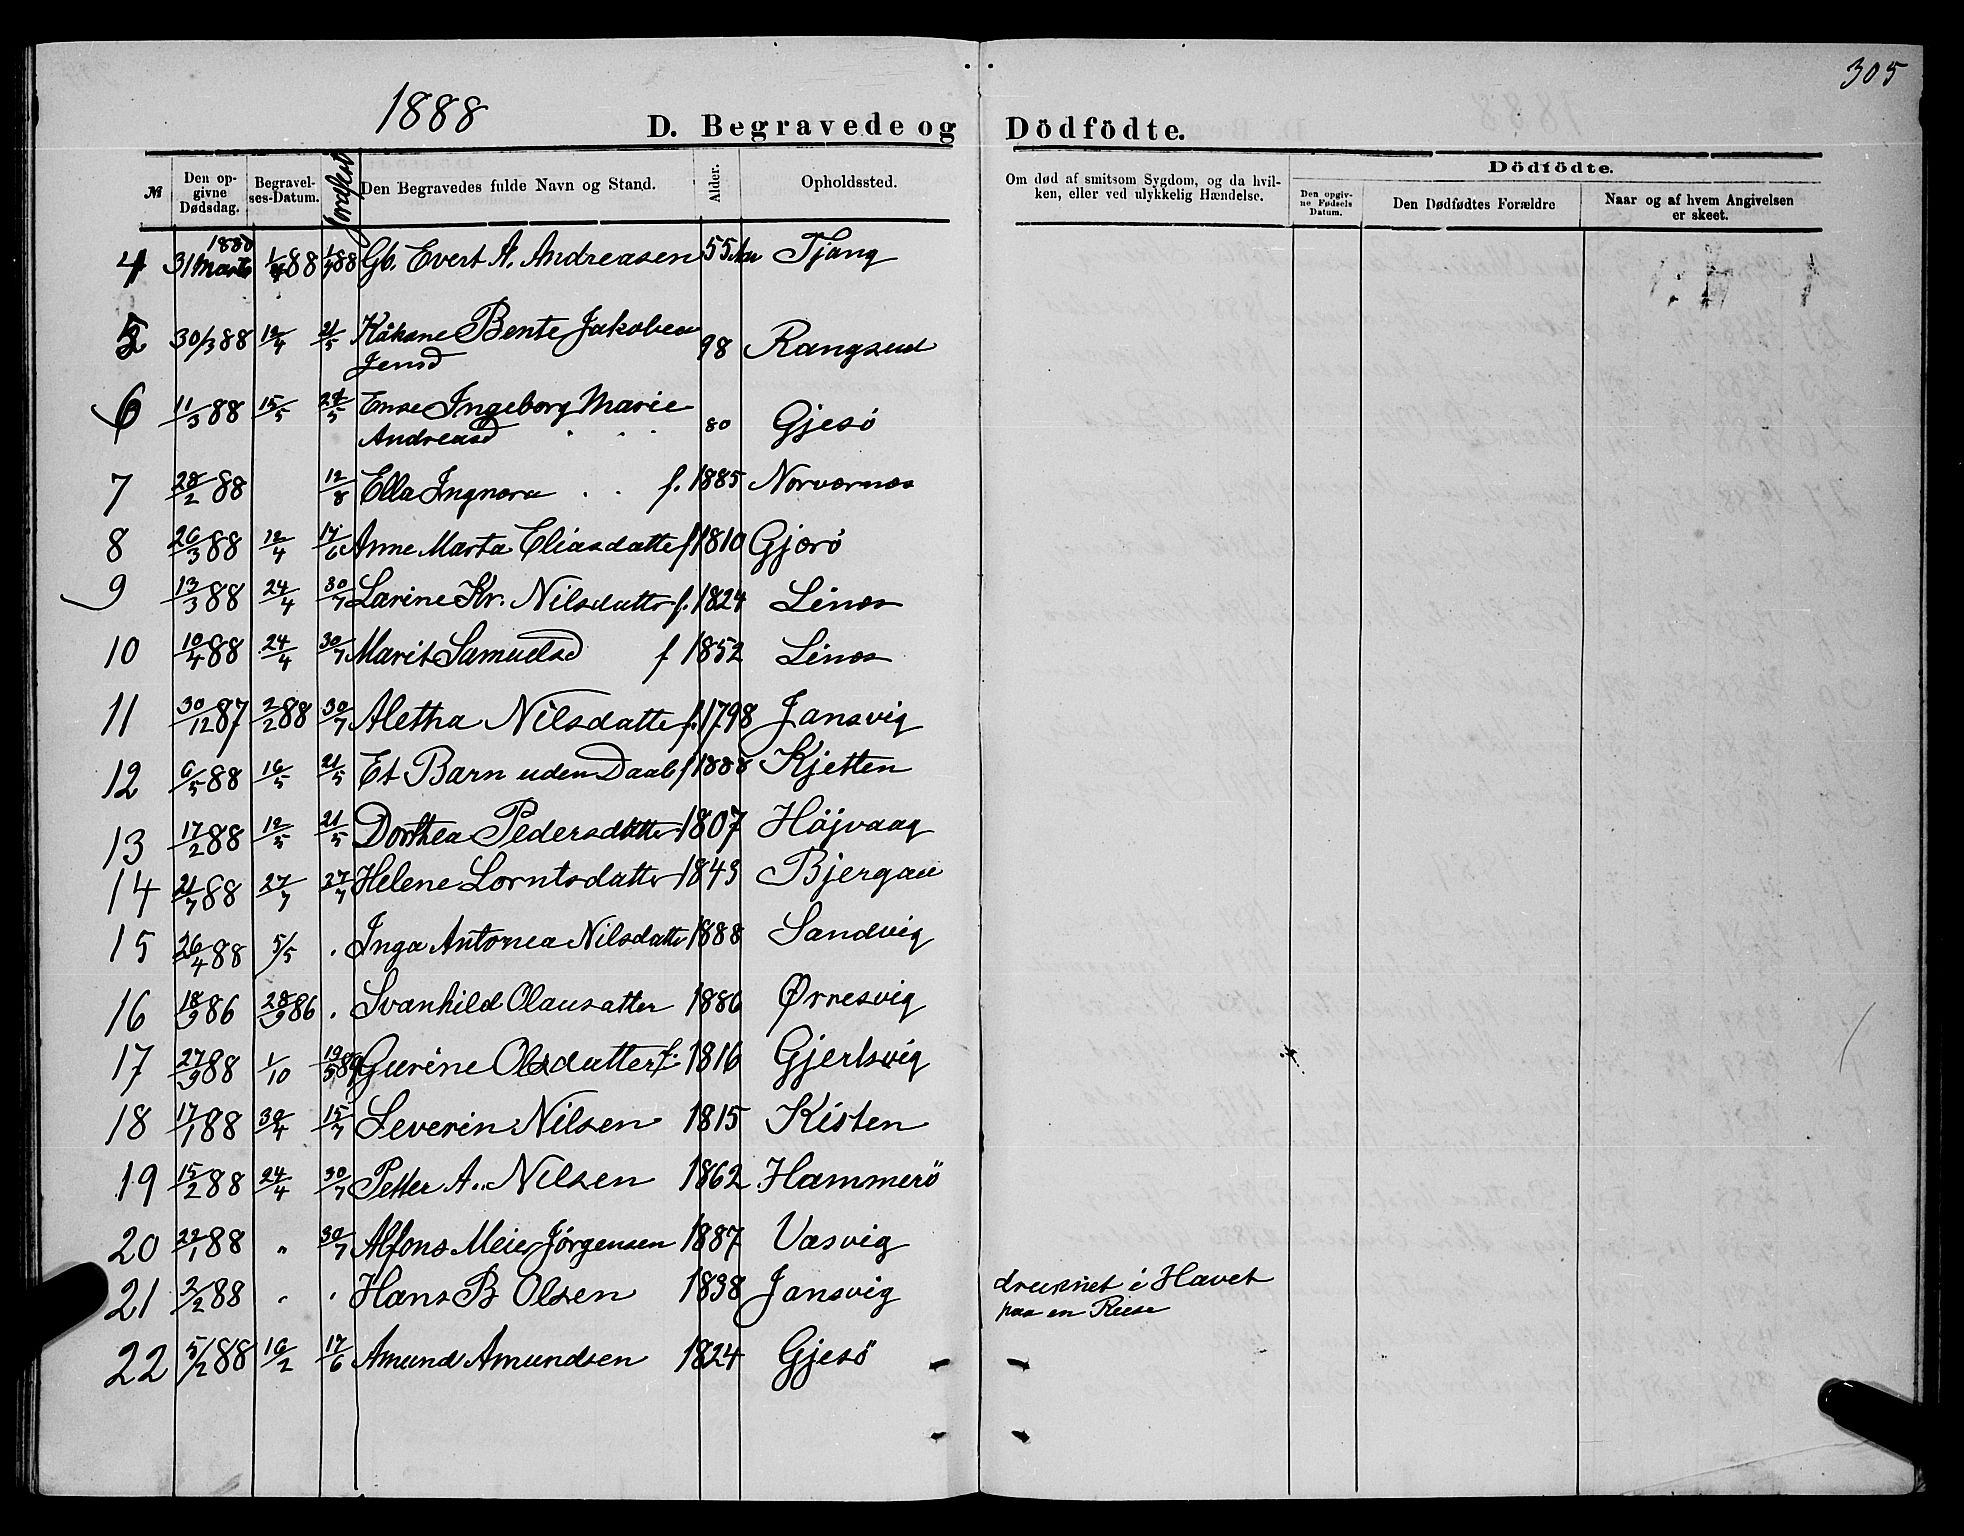 305
1888
D. Begravede og Dödfödte.
№ | Den opgivne Dødsdag. | Begravelses-Datum. | Jordfest | Den Begravedes fulde Navn og Stand. | Alder. | Opholdssted. | Om død af smitsom Sygdom, og da hvilken, eller ved ulykkelig Hændelse. | Dödfödte. | Den opgivne Fødsels Datum. | Den Dødfødtes Forældre | Naar og af hvem Angivelsen er skeet.
4 31 Marts 1888 1/4 88 1/4 88 Gb. Evert A. Andreasen 55 Aar Tjong
5 30/3 88 12/4 21/5 Kåkone Bente Jakobea 98 Rangsund
Jensd
6 11/3 88 15/5 21/5 Enke Ingeborg Marie 80 Gjesö
Andreasd
7 28/2 88 12/8 Ella Ingnora f. 1885 Norvernes
8 26/3 88 12/4 17/6 Anne Marta Eliasdatte f 1810 Gjerö
9 13/3 88 24/4 30/7 Larine Kr. Nilsdatte f. 1824 Lines
10 10/4 88 24/4 30/7 Marit Samuelsd f 1852 Lines
11 30/12 87 2/2 88 30/7 Aletha Nilsdatte f. 1798 Jansvig
12 6/5 88 16/5 21/5 Et Barn uden Daab f 1888 Kjetten
13 17/2 88 12/5 21/5 Dorthea Pedersdatter 1807 Höjvaag
14 21/7 88 27/7 27/7 Helene Lorntsdatter 1843 Bjergaa
15 26/4 88 5/5 . Inga Antonea Nilsdatte 1888 Sandvig
16 18/9 86 28/9 86 . Svanhild Olausatter 1886 Ørnesvig
17 27/9 88 1/10 19/5 89 Gurine Olsdatter f. 1816 Gjerlsvig
18 17/1 88 30/4 15/7 Severin Nilsen 1815 Kisten
19 15/2 88 24/4 30/7 Petter A. Nilsen 1862 Hammerö
20 22/1 88 „ 30/7 Alfons Meier Jörgensen 1887 Vasvig
21 2/2 88 . . Hans B Olsen 1838 Jansvig druknet i Havet
paa en Reise
22 5/2 88 16/2 17/6 Amund Amundsen 1824 Gjesö